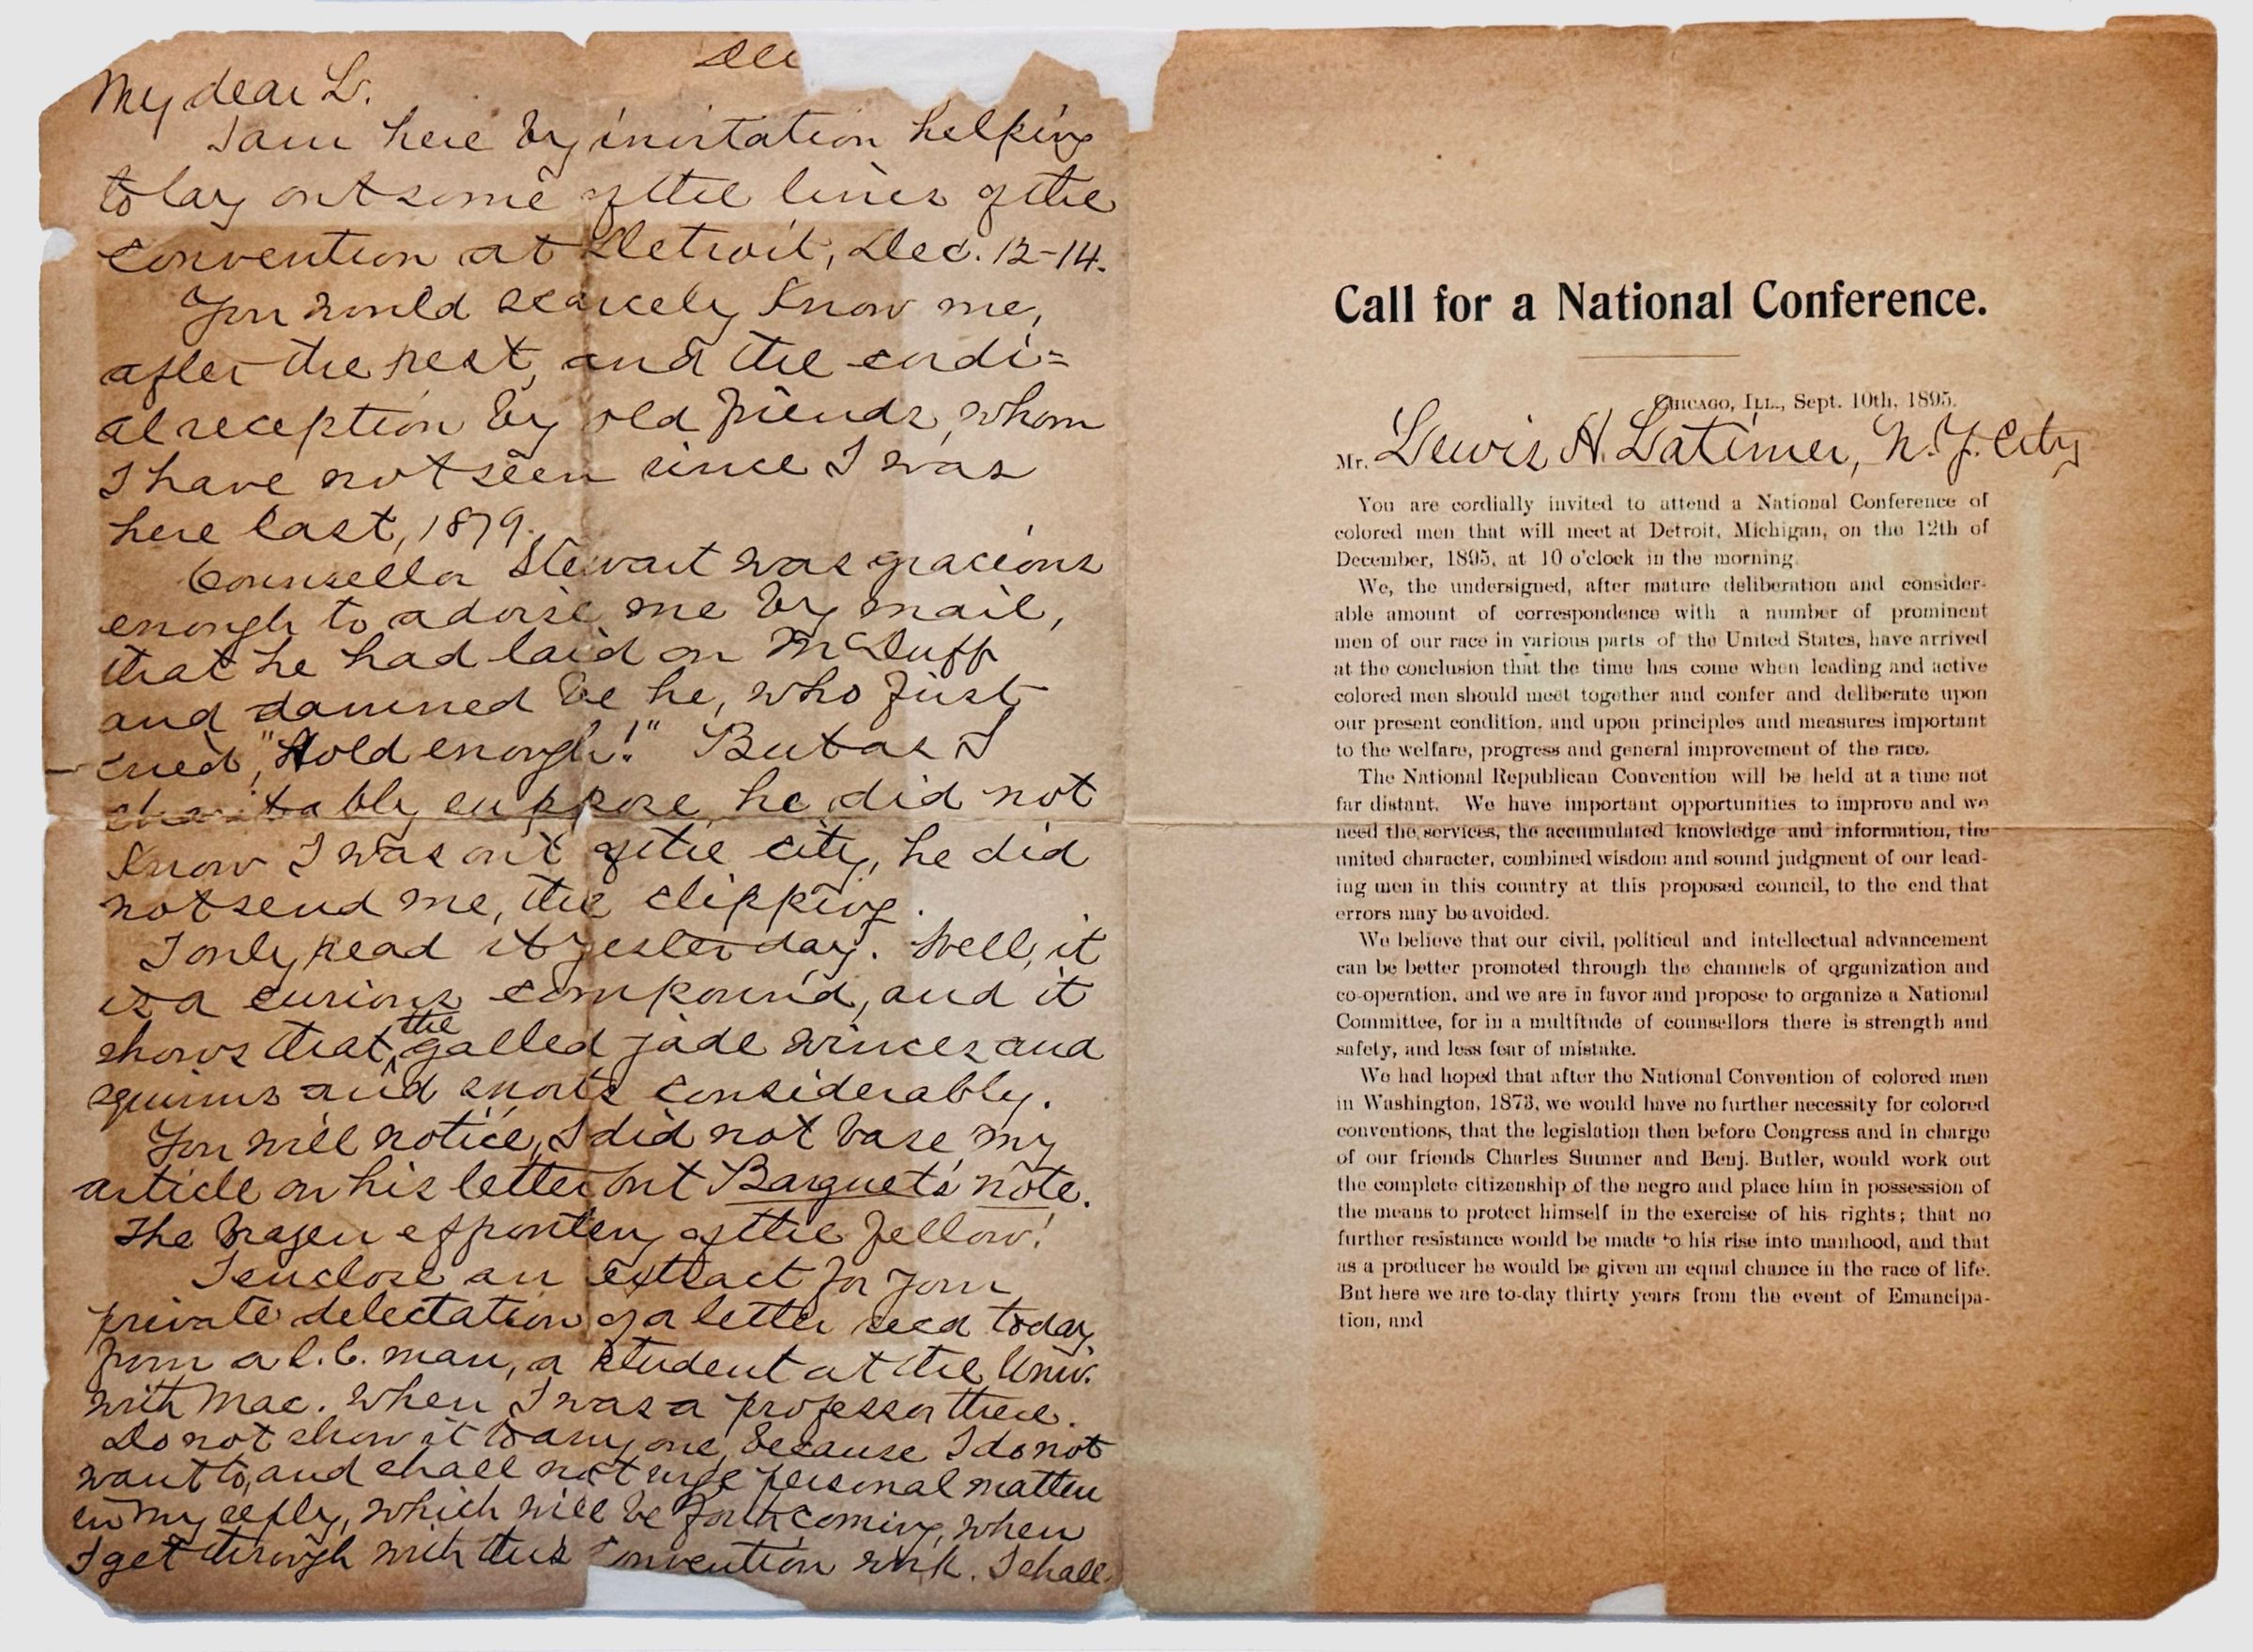 My dear L.
I am here by invitation helping
to lay out some of the lines of the
convention at Detroit, Dec. 12-14.
You would scarcely know me,
after the rest, and the cordi=
al reception by old friends, whom
I have not seen since I was
here last, 1879.
Counsellor Stewart was gracious
enough to advise me by mail,
that he had laid on McDuff
and damned be he, who first
cried, "Hold enough!" But as I
charitably suppose, he did not
know I was out of the city, he did
not send me, the clipping.
I only read it yesterday. Well, it
is a curious compound, and it
shows that the galled jade winces and
squirms and snorts considerably.
You will notice, I did not base my
article on his letter but Barquet's note.
The brazen effrontery of the fellow!
I enclose an extract for your
private delectation of a letter recd today
from a S.C. man, a student at the Univ.
with Mac. when I was a professor there.
Do not show it to any one, because I do not
want to, and shall not urge personal matter
in my reply, which will be forthcoming, when
I get through with this convention work. I shall
Call for a National Conference.
CHICAGO, ILL., Sept. 10th, 1895.
Mr. Lewis H. Latimer, N.Y. City
You are cordially invited to attend a National Conference of
colored men that will meet at Detroit, Michigan, on the 12th of
December, 1895, at 10 o'clock in the morning.
We, the undersigned, after mature deliberation and consider-
able amount of correspondence with a number of prominent
men of our race in various parts of the United States, have arrived
at the conclusion that the time has come when leading and active
colored men should meet together and confer and deliberate upon
our present condition, and upon principles and measures important
to the welfare, progress and general improvement of the race.
The National Republican Convention will be held at a time not
far distant. We have important opportunities to improve and we
need the services, the accumulated knowledge and information, the
united character, combined wisdom and sound judgment of our lead-
ing men in this country at this proposed council, to the end that
errors may be avoided.
We believe that our civil, political and intellectual advancement
can be better promoted through the channels of organization and
co-operation, and we are in favor and propose to organize a National
Committee, for in a multitude of counsellors there is strength and
safety, and less fear of mistake.
We had hoped that after the National Convention of colored men
in Washington, 1873, we would have no further necessity for colored
conventions, that the legislation then before Congress and in charge
of our friends Charles Sumner and Benj. Butler, would work out
the complete citizenship of the negro and place him in possession of
the means to protect himself in the exercise of his rights; that no
further resistance would be made to his rise into manhood, and that
as a producer he would be given an equal chance in the race of life.
But here we are to-day thirty years from the event of Emancipa-
tion, and